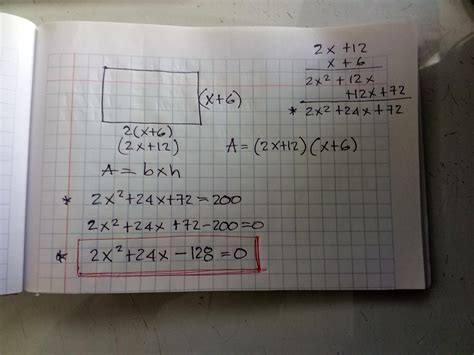 2x+12
x+6
2x²+12x
+12x+72
* 2x²+24x+72
(x+6)
2(x+6)
(2x+12)
A=(2x+12)(x+6)
A=bxh
* 2x²+24x+72=200
2x²+24x+72-200=0
* 2x²+24x-128=0